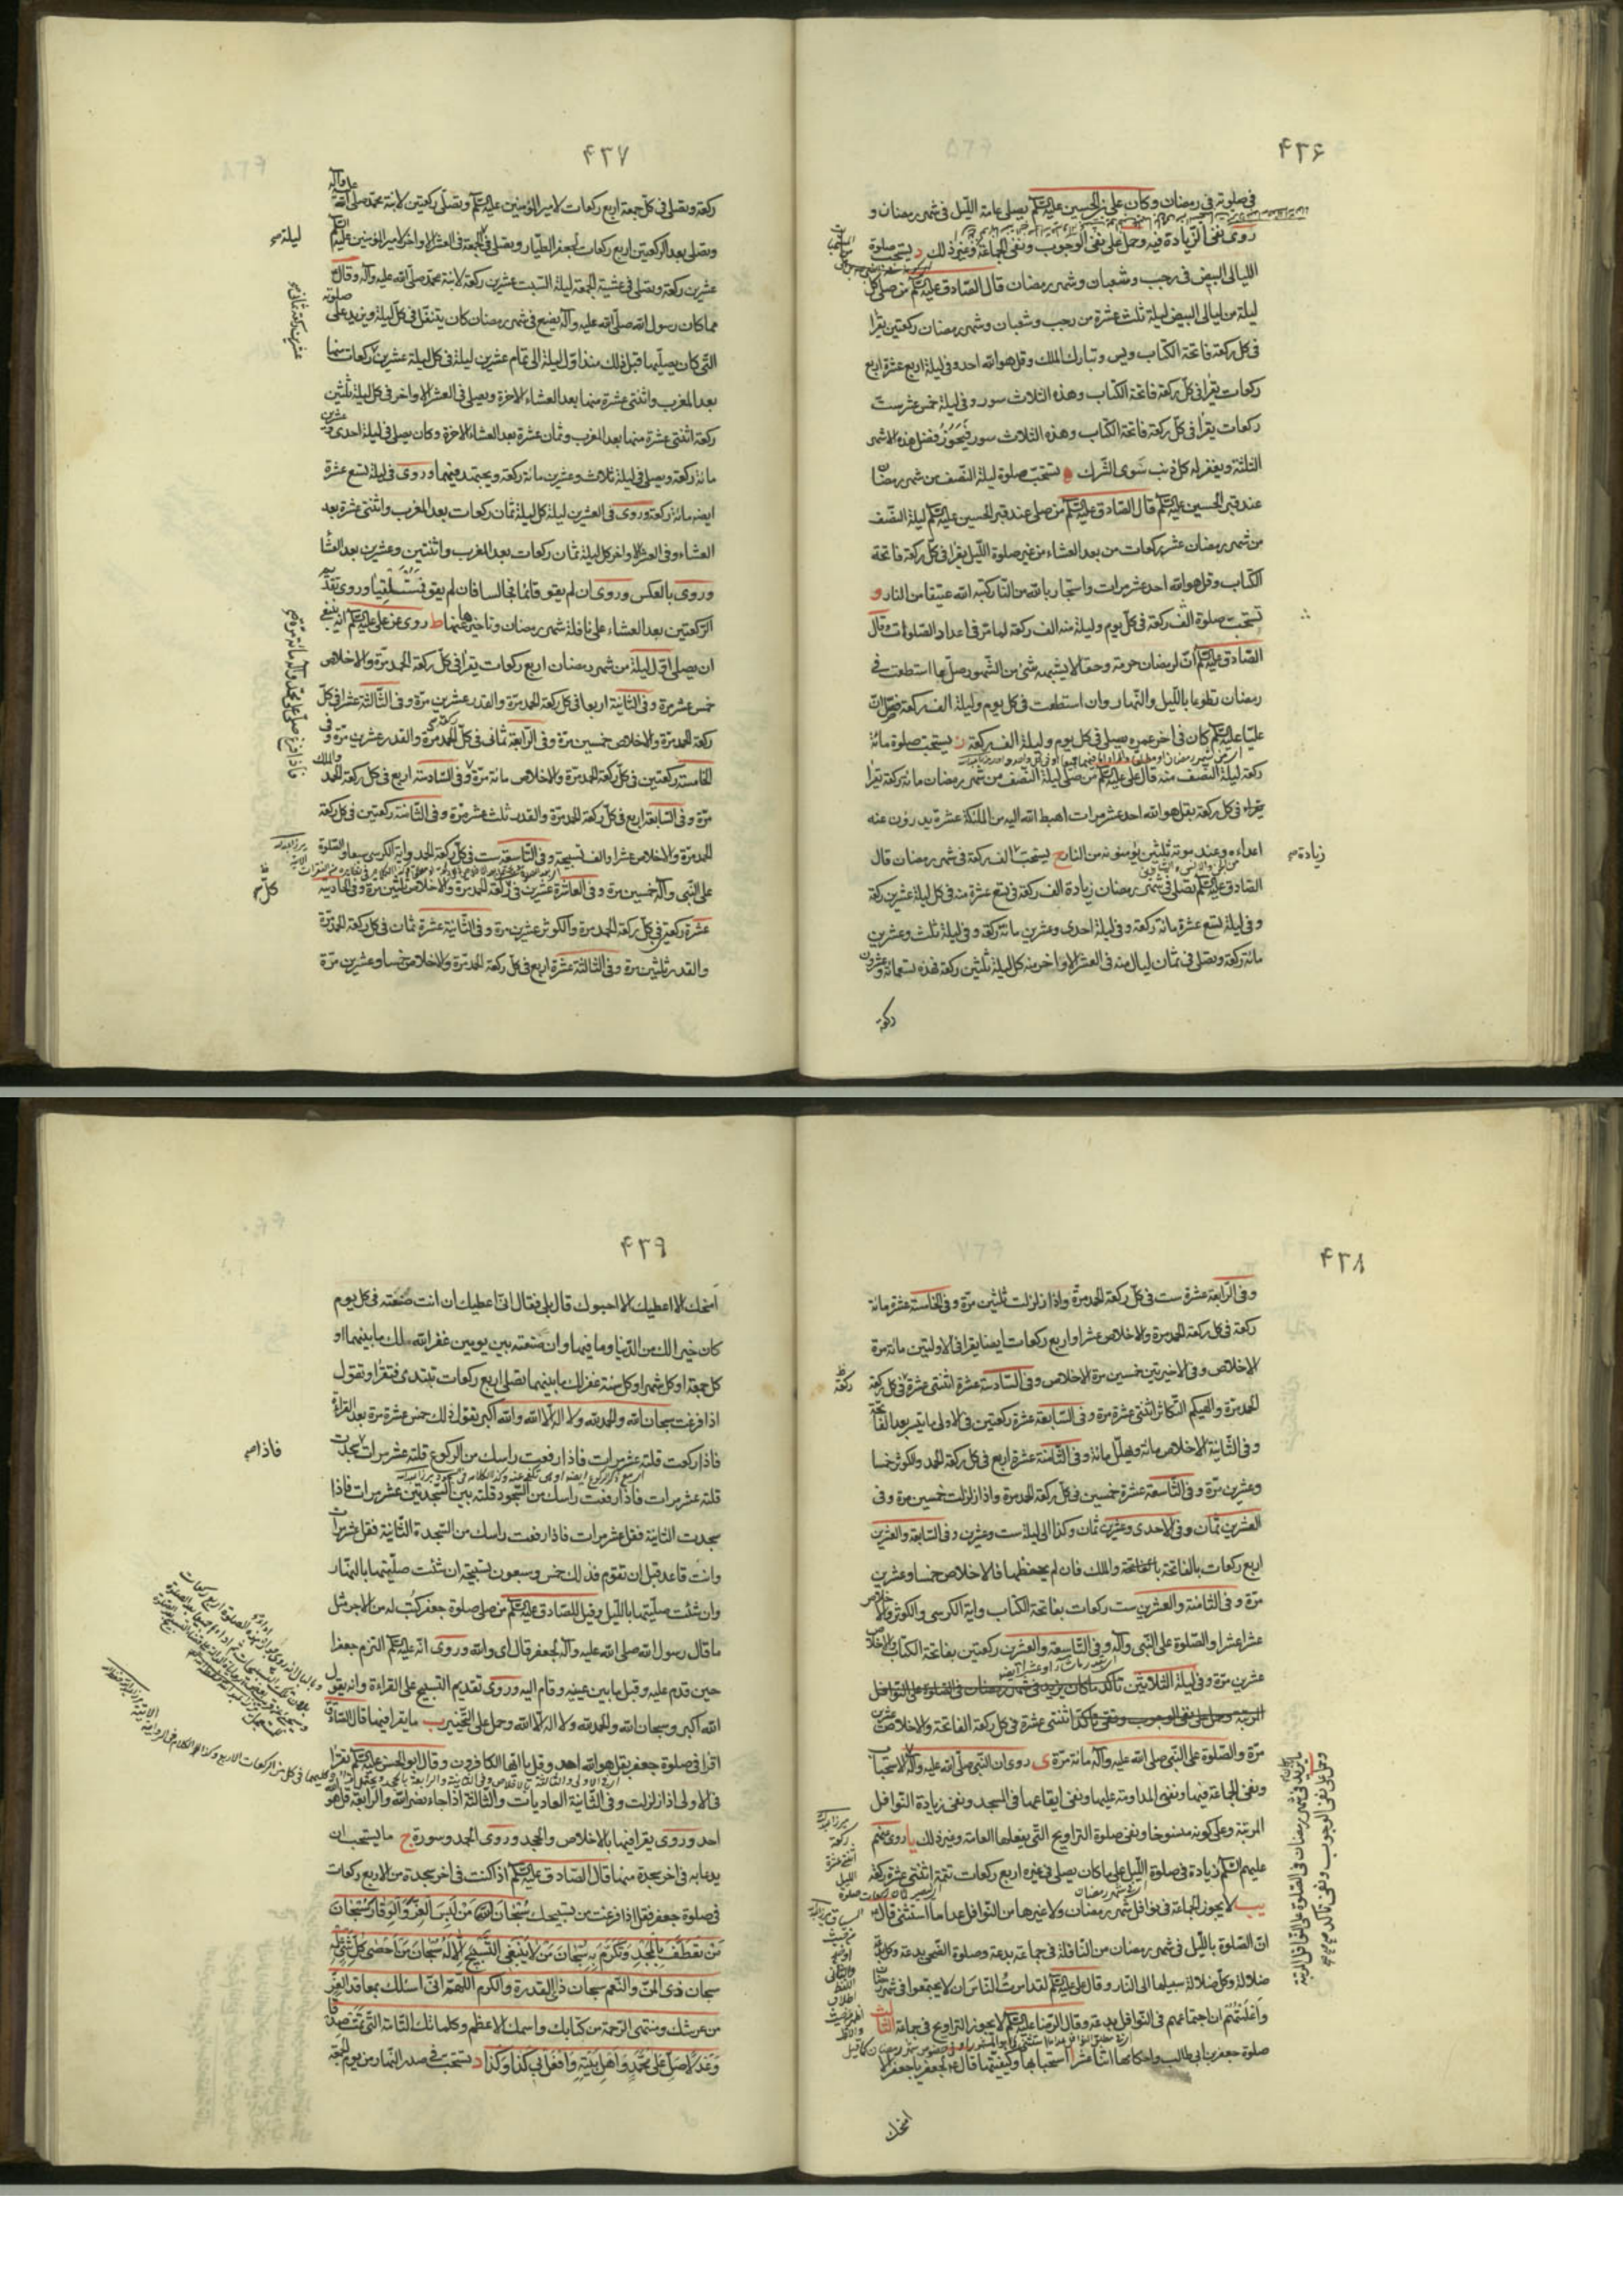 ۴۳۶
في صلوته في رمضان وكان علي بن الحسين عليه السلم يصلى عامة الليل في شهر رمضان و
روى نفى الزيادة فيه وحمل على نفى الوجوب ونفى الجماعة وغير ذلك د يستحب صلوة
الليالى البيض في رجب وشعبان وشهر رمضان قال الصادق عليه السلم من صلى كل
ليلة من ليالى البيض ليلة ثلث عشرة من رجب وشعبان وشهر رمضان ركعتين يقرا
في كل ركعة فاتحة الكتاب ويس وتبارك الملك وقل هو الله احد وفي ليلة اربع عشرة اربع
ركعات يقرا في كل ركعة فاتحة الكتاب وهذه الثلاث سور وفي ليلة خمس عشر ست
ركعات يقرا في كل ركعة فاتحة الكتاب وهذه الثلاث سور فيحوز فضل هذه الاشهر
الثلثة ويغفر له كل ذنب سوى الشرك ه يستحب صلوة ليلة النصف من شهر رمضان
عند قبر الحسين عليه السلم قال الصادق عليه السلم من صلى عند قبر الحسين عليه السلم ليلة النصف
من شهر رمضان عشر ركعات من بعد العشاء من غير صلوة الليل يقرا في كل ركعة فاتحة
الكتاب وقل هو الله احد عشر مرات واستجار بالله من النار كتبه الله عتيقا من النار و
تستحب صلوة الف ركعة في كل يوم وليلة منه الف ركعة لما مر في اعداد الصلوات وقال
الصادق عليه السلم ان لرمضان حرمة وحقا لا يشبهه شئ من الشهور صل ما استطعت في
رمضان تطوعا بالليل والنهار وان استطعت في كل يوم وليلة الف ركعة فصل ان
عليا عليه السلم كان في اخر عمره يصلى في كل يوم وليلة الف ركعة ز يستحب صلوة مائة
ركعة ليلة النصف منه قال على عليه السلم من صلى ليلة النصف من شهر رمضان مائة ركعة يقرا
يقراء في كل ركعة بقل هو الله احد عشر مرات اهبط الله اليه من الملئكة عشرة يدرؤن عنه
اعداءه وعند موته ثلثين يؤمنونه من النار ح يستحب الف ركعة في شهر رمضان قال
زيادة صح
الصادق عليه السلم يصلى في شهر رمضان زيادة الف ركعة في تسع عشرة منه في كل ليلة عشرين ركعة
وفي ليلة تسع عشرة مائة ركعة وفي ليلة احدى وعشرين مائة ركعة وفي ليلة ثلث وعشرين
مائة ركعة وتصلى في ثمان ليال منه في العشر الاواخر منه كل ليلة ثلثين ركعة فهذه تسعمائة وعشرون
ركعة
۴۳۷
ركعة وتصلى في كل جمعة اربع ركعات لامير المؤمنين عليه السلم وتصلى ركعتين لابنة محمد صلى الله عليه وآله
وتصلى بعد الركعتين اربع ركعات لجعفر الطيار وتصلى في الجمعة في العشر الاواخر لامير المؤمنين عليه السلم
ليلة صح
عشرين ركعة وتصلى في عشية الجمعة ليلة السبت عشرين ركعة لابنة محمد صلى الله عليه وآله وقال
مما كان رسول الله صلى الله عليه وآله يصنع في شهر رمضان كان يتنفل في كل ليلة ويزيد على صلوته
التى كان يصليها قبل ذلك منذ اول ليلة الى تمام عشرين ليلة في كل ليلة عشرين ركعات منها
بعد المغرب واثنتى عشرة منها بعد العشاء الاخرة ويصلى في العشر الاواخر في كل ليلة ثلثين
ركعة اثنتى عشرة منها بعد المغرب وثمان عشرة بعد العشاء الاخرة وكان يصلى في ليلة احدى وعشرين
مائة ركعة ويصلى في ليلة ثلاث وعشرين مائة ركعة ويجتهد فيهما وروى في ليلة تسع عشرة
ايضه مائة ركعة وروى في العشرين ليلة كل ليلة ثمان ركعات بعد المغرب واثنتى عشرة بعد
العشاء وفي العشر الاواخر كل ليلة ثمان ركعات بعد المغرب واثنتين وعشرين بعد العشا
وروى بالعكس وروى ان لم يقو قائما فجالسا فان لم يقو فمستلقيا وروى تقديم
الركعتين بعد العشاء على نافلة شهر رمضان وتاخيرها عنها ط روى عن على عليه السلم انه ينبغى
ان يصلى اول ليلة من شهر رمضان اربع ركعات يقرا في كل ركعة الحمد مرة والاخلاص
خمس عشر مرة وفي الثانية اربعا في كل ركعة الحمد مرة والقدر عشرين مرة وفي الثالثة عشرا في كل
ركعة الحمد مرة والاخلاص خمسين مرة وفي الرابعة ثمان في كل ركعة الحمد مرة والقدر عشرين مرة وفي
الخامسة ركعتين في كل ركعة الحمد مرة والاخلاص مائة مرة وفي السادسة اربع في كل ركعة الحمد والملك
فاذا فرغ صلى على محمد وآله مائة مرة صح
مرة وفي السابعة اربع في كل ركعة الحمد مرة والقدر ثلث عشر مرة وفي الثامنة ركعتين في كل ركعة
الحمد مرة والاخلاص عشرا والف تسبيحة وفي التاسعة ست في كل ركعة الحمد واية الكرسى سبعا والصلوة
على النبى وآله خمسين مرة وفي العاشرة عشرين في ركعة الحمد مرة والاخلاص ثلثين مرة وفي الحادية
كل صح
عشرة ركعتين في كل ركعة الحمد مرة والكوثر عشرين مرة وفي الثانية عشرة ثمان في كل ركعة الحمد مرة
والقدر ثلثين مرة وفي الثالثة عشرة اربع في كل ركعة الحمد مرة والاخلاص خمسا وعشرين مرة
۴۳۸
وفي الرابعة عشرة ست في كل ركعة الحمد مرة واذا زلزلت ثلثين مرة وفي الخامسة عشرة مائة
ركعة في كل ركعة الحمد مرة والاخلاص عشرا واربع ركعات ايضا يقرا في الاوليين مائة مرة
الاخلاص وفي الاخيرتين خمسين مرة الاخلاص وفي السادسة عشرة اثنتى عشرة في كل ركعة
ركعة
الحمد مرة والهيكم التكاثر اثنتى عشرة مرة وفي السابعة عشرة ركعتين في الاولى ما تيسر بعد الفاتحة
وفي الثانية الاخلاص مائة ويهلل مائة وفي الثامنة عشرة اربع في كل ركعة الحمد والكوثر خمسا
وعشرين مرة وفي التاسعة عشرة خمسين في كل ركعة الحمد مرة واذا زلزلت خمسين مرة وفي
العشرين ثمان وفي الاحدى وعشرين ثمان وكذا الى ليلة ست وعشرين وفي السابعة والعشرين
اربع ركعات بالفاتحة والملك فان لم يحفظهما فالاخلاص خمسا وعشرين
مرة وفي الثامنة والعشرين ست ركعات بفاتحة الكتاب واية الكرسى والكوثر والاخلاص
عشرا عشرا والصلوة على النبى وآله وفي التاسعة والعشرين ركعتين بفاتحة الكتاب والاخلاص
عشرين مرة وفي ليلة الثلاثين
اثنتى عشرة في كل ركعة الفاتحة والاخلاص عشرين
مرة والصلوة على النبى صلى الله عليه وآله مائة مرة ى روى ان النبى صلى الله عليه وآله
ونفى الجماعة فيها ونفى المداومة عليها ونفى ايقاعها في المسجد ونفى زيادة النوافل
المرتبة وعلى كونه منسوخا ونفى صلوة التراويح التى يفعلها العامة وغير ذلك يا روى عنهم
عليهم السلم زيادة في صلوة الليل على ما كان يصلى في غيره اربع ركعات تتمة اثنتى عشرة ركعة
يب لا يجوز الجماعة في نوافل شهر رمضان ولا غيرها من النوافل عدا ما استثنى قال
ان الصلوة بالليل في شهر رمضان من النافلة في جماعة بدعة وصلوة الضحى بدعة وكل بدعة
ضلالة وكل ضلالة سبيلها الى النار وقال على عليه السلم لقد امرت الناس ان لا يجتمعوا في شهر رمضان
واعلمتهم ان اجتماعهم في النوافل بدعة وقال الرضا عليه السلم لا يجوز التراويح في جماعة الثالث
صلوة جعفر بن ابى طالب واحكامها اثنا عشر ا استحبابها وكيفيتها قال لجعفر يا جعفر الا
امنحك
۴۳۹
امنحك الا اعطيك الا احبوك قال بلى فقال انى اعطيك ان انت صنعته في كل يوم
كان خيرا لك من الدنيا وما فيها وان صنعته بين يومين غفر الله لك ما بينهما او
كل جمعة او كل شهر او كل سنة غفر لك ما بينهما تصلى اربع ركعات تبتدى فتقرا وتقول
اذا فرغت سبحان الله والحمد لله ولا اله الا الله والله اكبر تقول ذلك خمس عشرة مرة بعد القراءة
فاذا ركعت قلته عشر مرات فاذا رفعت راسك من الركوع قلته عشر مرات سجدت
فاذا صح
قلته عشر مرات فاذا رفعت راسك من السجود قلته بين السجدتين عشر مرات فاذا
سجدت الثانية فقل عشر مرات فاذا رفعت راسك من السجدة الثانية فقل عشر مرات
وانت قاعد قبل ان تقوم فذلك خمس وسبعون تسبيحة ان شئت صليتها بالنهار
وان شئت صليتها بالليل وقيل للصادق عليه السلم من صلى صلوة جعفر كتب له من الاجر مثل
ما قال رسول الله صلى الله عليه وآله لجعفر قال اى والله وروى انه عليه السلم التزم جعفرا
حين قدم عليه وقبل ما بين عينيه وقام اليه وروى تقديم التسبيح على القراءة وانه يقول
الله اكبر وسبحان الله والحمد لله ولا اله الا الله وحمل على التخيير ب ما يقرا فيها قال الصادق
اقرا في صلوة جعفر بقل هو الله احد وقل يا ايها الكافرون وقال ابو الحسن عليه السلم تقرا
في الاولى اذا زلزلت وفي الثانية العاديات والثالثة اذا جاء نصر الله والرابعة قل هو الله
احد وروى يقرا فيها بالاخلاص والجحد وروى الحمد وسورة ج ما يستحب ان
يدعا به في اخر سجدة منها قال الصادق عليه السلم اذا كنت في اخر سجدة من الاربع ركعات
في صلوة جعفر فقل اذا فرغت من تسبيحك سبحان من لبس العز والوقار سبحان
من تعطف بالمجد وتكرم به سبحان من لا ينبغى التسبيح الا له سبحان من احصى كل شئ علمه
سبحان ذى المن والنعم سبحان ذى القدرة والكرم اللهم انى اسئلك بمعاقد العز
من عرشك ومنتهى الرحمة من كتابك واسمك الاعظم وكلماتك التامة التى تمت صدقا
وعدلا صل على محمد واهل بيته وافعل بى كذا وكذا د يستحب في صدر النهار من يوم الجمعة